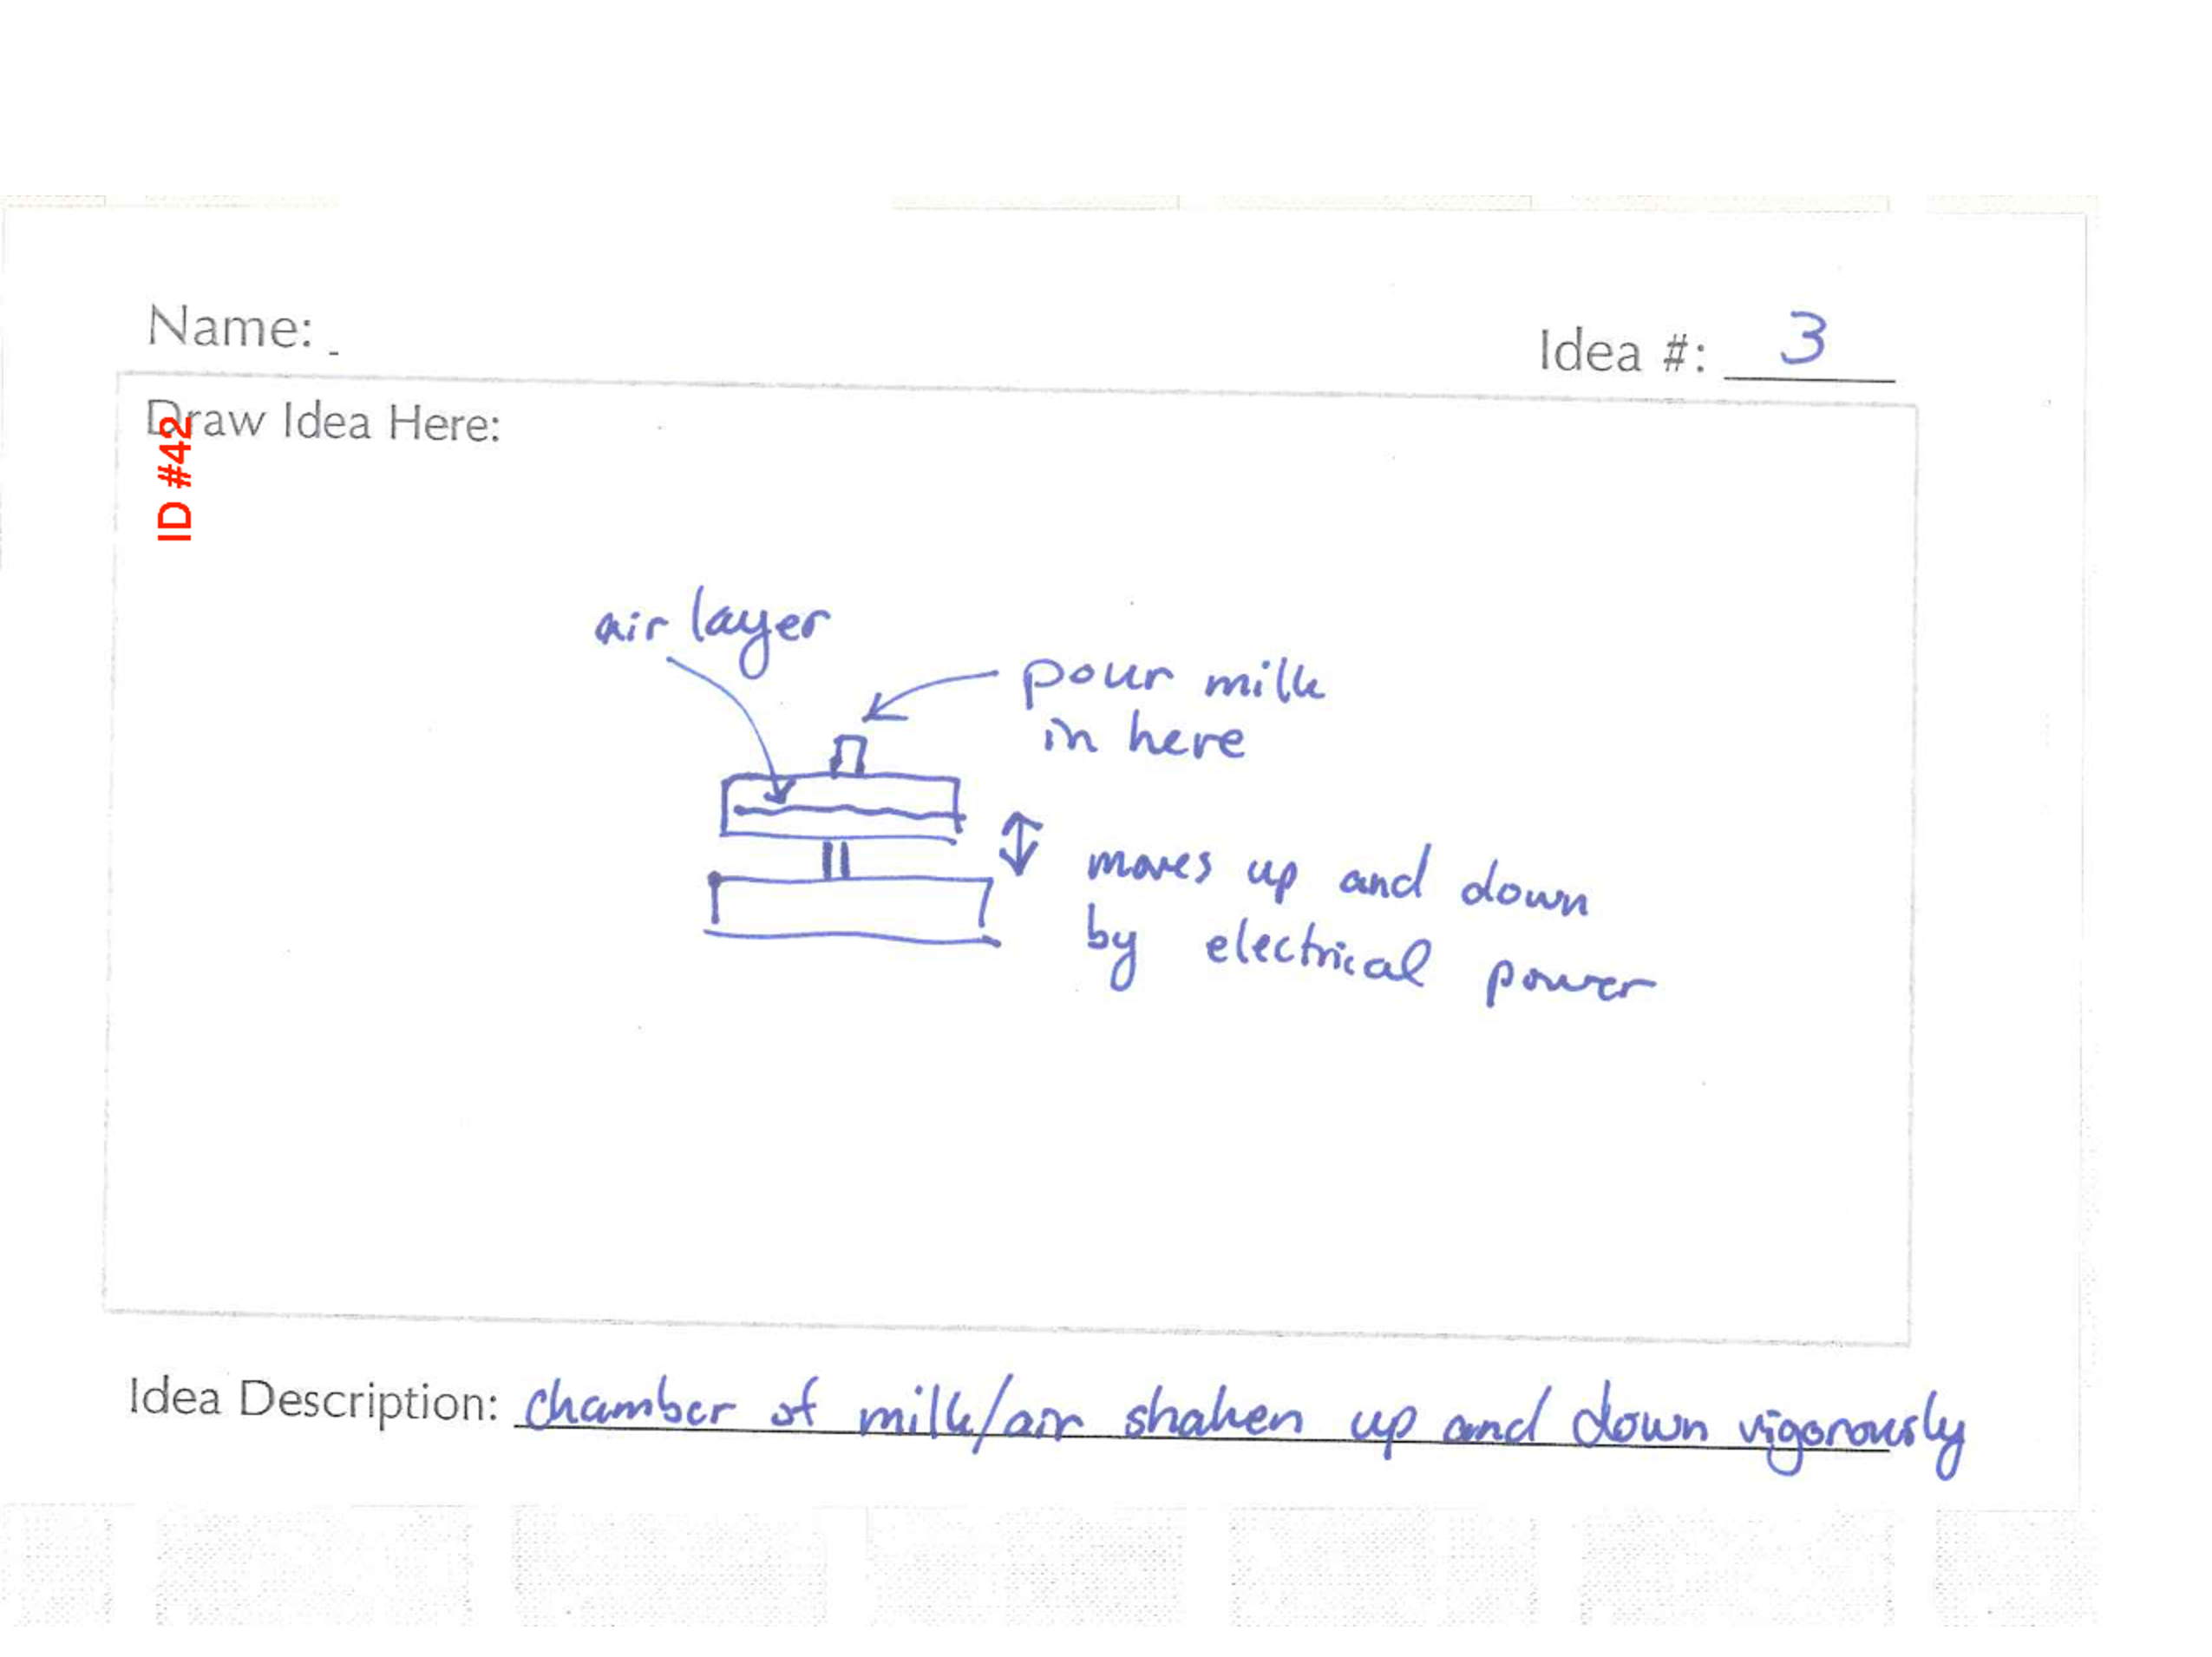 Name:
Idea #: 3
Draw Idea Here:
ID #42
air layer
pour milk
in here
moves up and down
by electrical power
Idea Description: chamber of milk/air shaken up and down vigorously